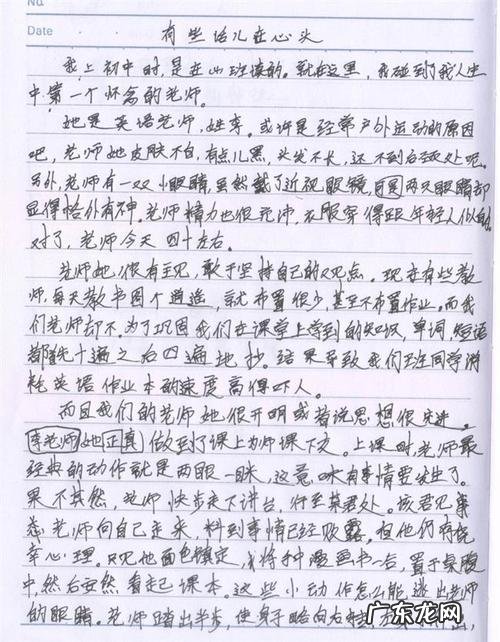 No.
Date
有些话儿在心头
我上初中时,是在山班读的。就在这里,我碰到了我人生
中第一个怀念的老师。
她是英语老师,姓李。或许是经常户外运动的原因
吧,老师她皮肤不白,有点儿黑,头发不长,还不到后颈处呢。
另外,老师有一双小眼睛,虽然戴了近视眼镜,两只眼睛却
显得格外有神。老师精力也很充沛,衣服穿得跟年轻人似的
对了,老师今天四十左右。
老师她很有主见,敢于坚持自己的观点。现在有些教
师,每天教书图个逍遥,就布置很少,甚至不布置作业。而我
们老师却不。为了巩固我们在课堂上学到的知识,单词,短语
都先十遍之后四遍地抄。结果导致我们班同学消
耗英语作业本的速度高得吓人。
而且我们的老师她很开明或者说思想很先进。
李老师她真正做到了课上为师课下友。上课时,老师最
经典的动作就是两眼一眯,这竟味有事情要发生了。
果不其然,老师快步走下讲台,行至某君处。该君见
老师向自己走来,料到事情已经败露。但他仍有侥
幸心理。只见他面色镇定,将手中漫画书一合,置于桌腹
中,然后安然看起课本。这些小动作怎么能逃出老师
的眼睛。老师踏出半步,使身子略向右
广东龙网